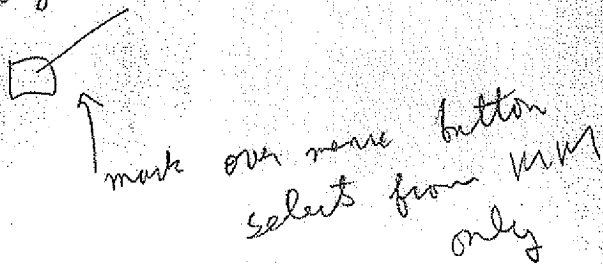 mark over menu button
select from
only